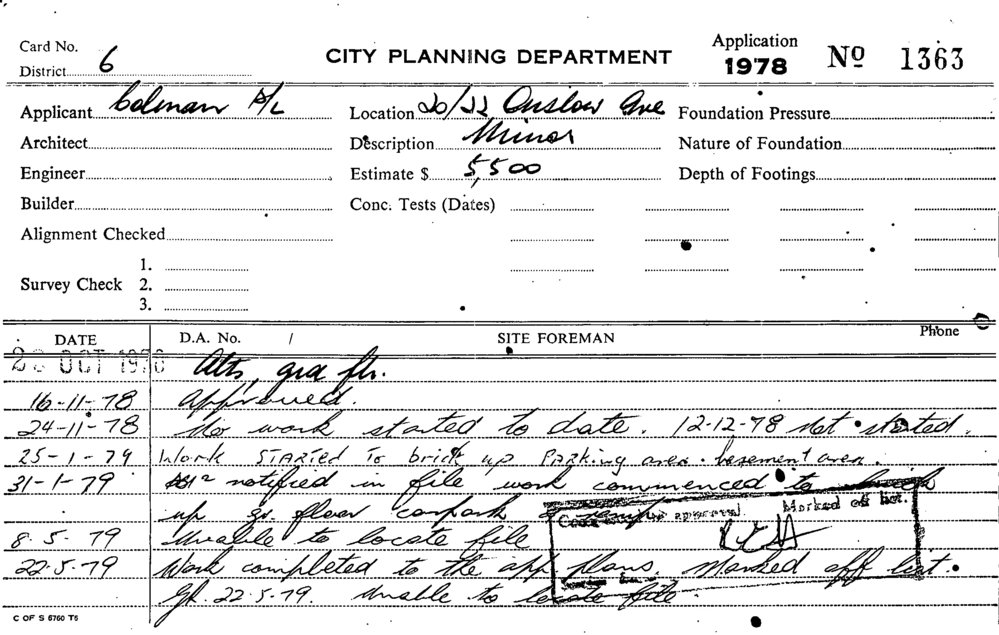 Card No.
District 6
CITY PLANNING DEPARTMENT
Application
1978
Nº 1363
Applicant Colman P/L
Architect
Engineer
Builder
Alignment Checked
Survey Check 1.
2.
3.
Location 20/22 Onslow Ave
Description Minor
Estimate $ 5,500
Conc. Tests (Dates)
Foundation Pressure
Nature of Foundation
Depth of Footings
DATE D.A. No. / SITE FOREMAN Phone
OCT Alts, grd flr.
16-11-78 Approved.
24-11-78 No work started to date. 12-12-78 Not started.
25-1-79 Work STARTED To brick up PARking area. basement area
31-1-79 notified in file work commenced to brick
up gr. floor carpark & ramp
approval Marked off list.
8.5.79 Unable to locate file
22.5.79 Work completed to the app plans. Marked off list.
22.5.79. Unable to locate file.
C OF S 6760 T5